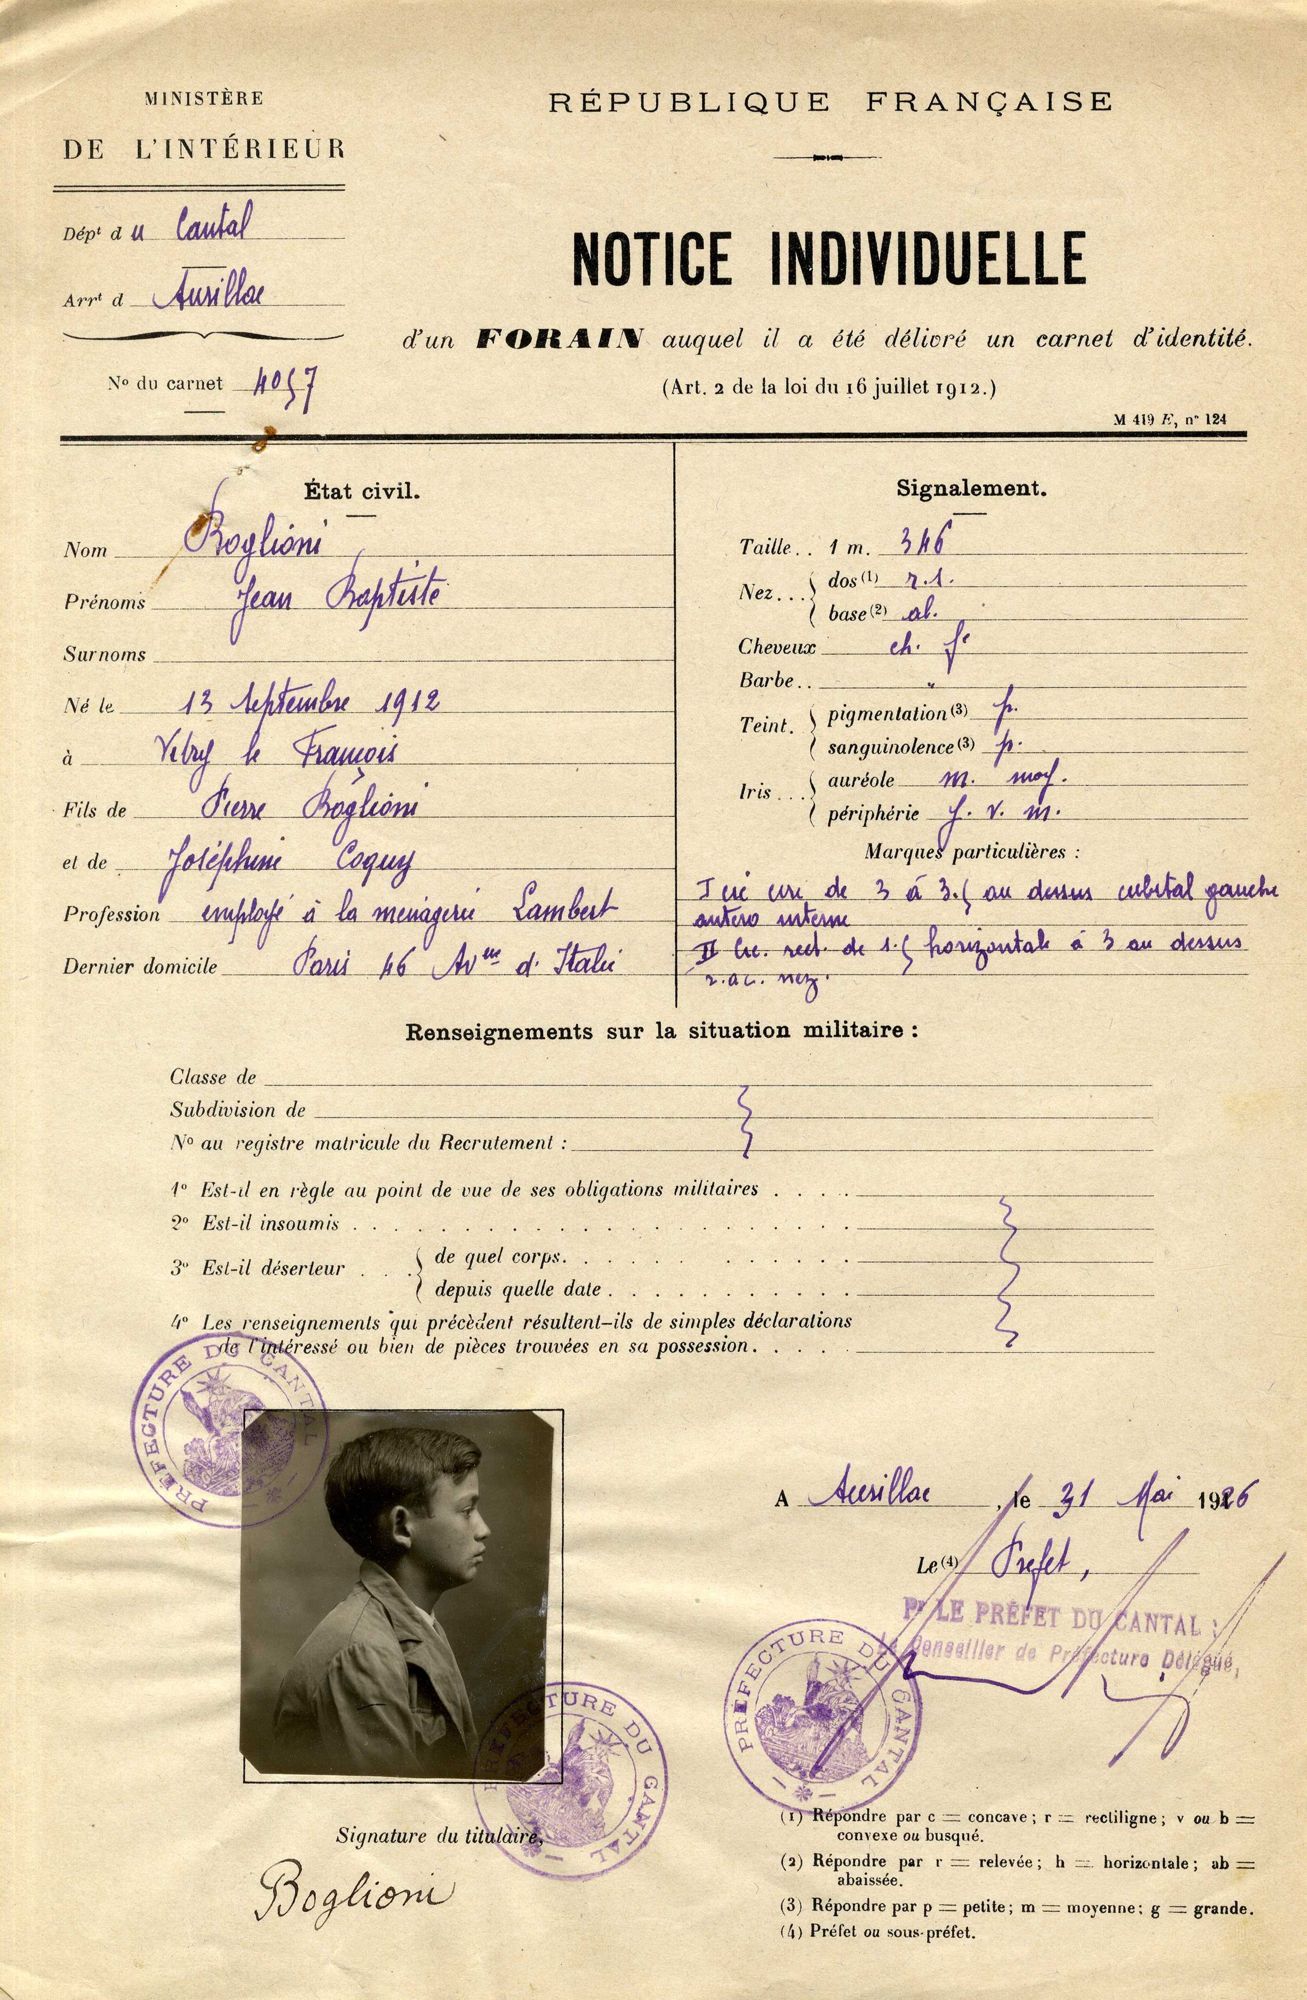 MINISTÈRE
DE L'INTÉRIEUR
Dépt du Cantal
Arrt d Aurillac
No du carnet 4057
RÉPUBLIQUE FRANÇAISE
NOTICE INDIVIDUELLE
d'un FORAIN auquel il a été délivré un carnet d'identité.
(Art. 2 de la loi du 16 juillet 1912.)
M 419 E, no 124
État civil.
Nom Boglioni
Prénoms Jean Baptiste
Surnoms
Né le 13 Septembre 1912
à Vitry le François
Fils de Pierre Boglioni
et de Joséphine Coquy
Profession employé à la ménagerie Lambert
Dernier domicile Paris 46 Avnue d'Italie
Signalement.
Taille.. 1 m. 346
Nez... dos (1) r.s.
base (2) ab.
Cheveux ch. fé
Barbe.. "
Teint. pigmentation (3) p.
sanguinolence (3) p.
Iris... auréole m. moy.
périphérie j. v. m.
Marques particulières :
I cic de 3 à 3.5 au dessus cubital gauche
antero interne
II Cic. rect. de 1.5 horizontale à 3 au dessus
r.ac. nez.
Renseignements sur la situation militaire :
Classe de
Subdivision de
No au registre matricule du Recrutement :
1o Est-il en règle au point de vue de ses obligations militaires . . . .
2o Est-il insoumis . . . .
3o Est-il déserteur . . . de quel corps. . . .
depuis quelle date . . . .
4o Les renseignements qui précèdent résultent-ils de simples déclarations
de l'intéressé ou bien de pièces trouvées en sa possession. . . .
PRÉFECTURE DU CANTAL
A Aurillac, le 31 Mai 1926
Le (4) Préfet,
Pr LE PRÉFET DU CANTAL :
Le Conseiller de Préfecture Délégué,
PRÉFECTURE DU CANTAL
PRÉFECTURE DU CANTAL
Signature du titulaire,
Boglioni
(1) Répondre par c = concave ; r = rectiligne ; v ou b =
convexe ou busqué.
(2) Répondre par r = relevée ; h = horizontale ; ab =
abaissée.
(3) Répondre par p = petite ; m = moyenne ; g = grande.
(4) Préfet ou sous-préfet.